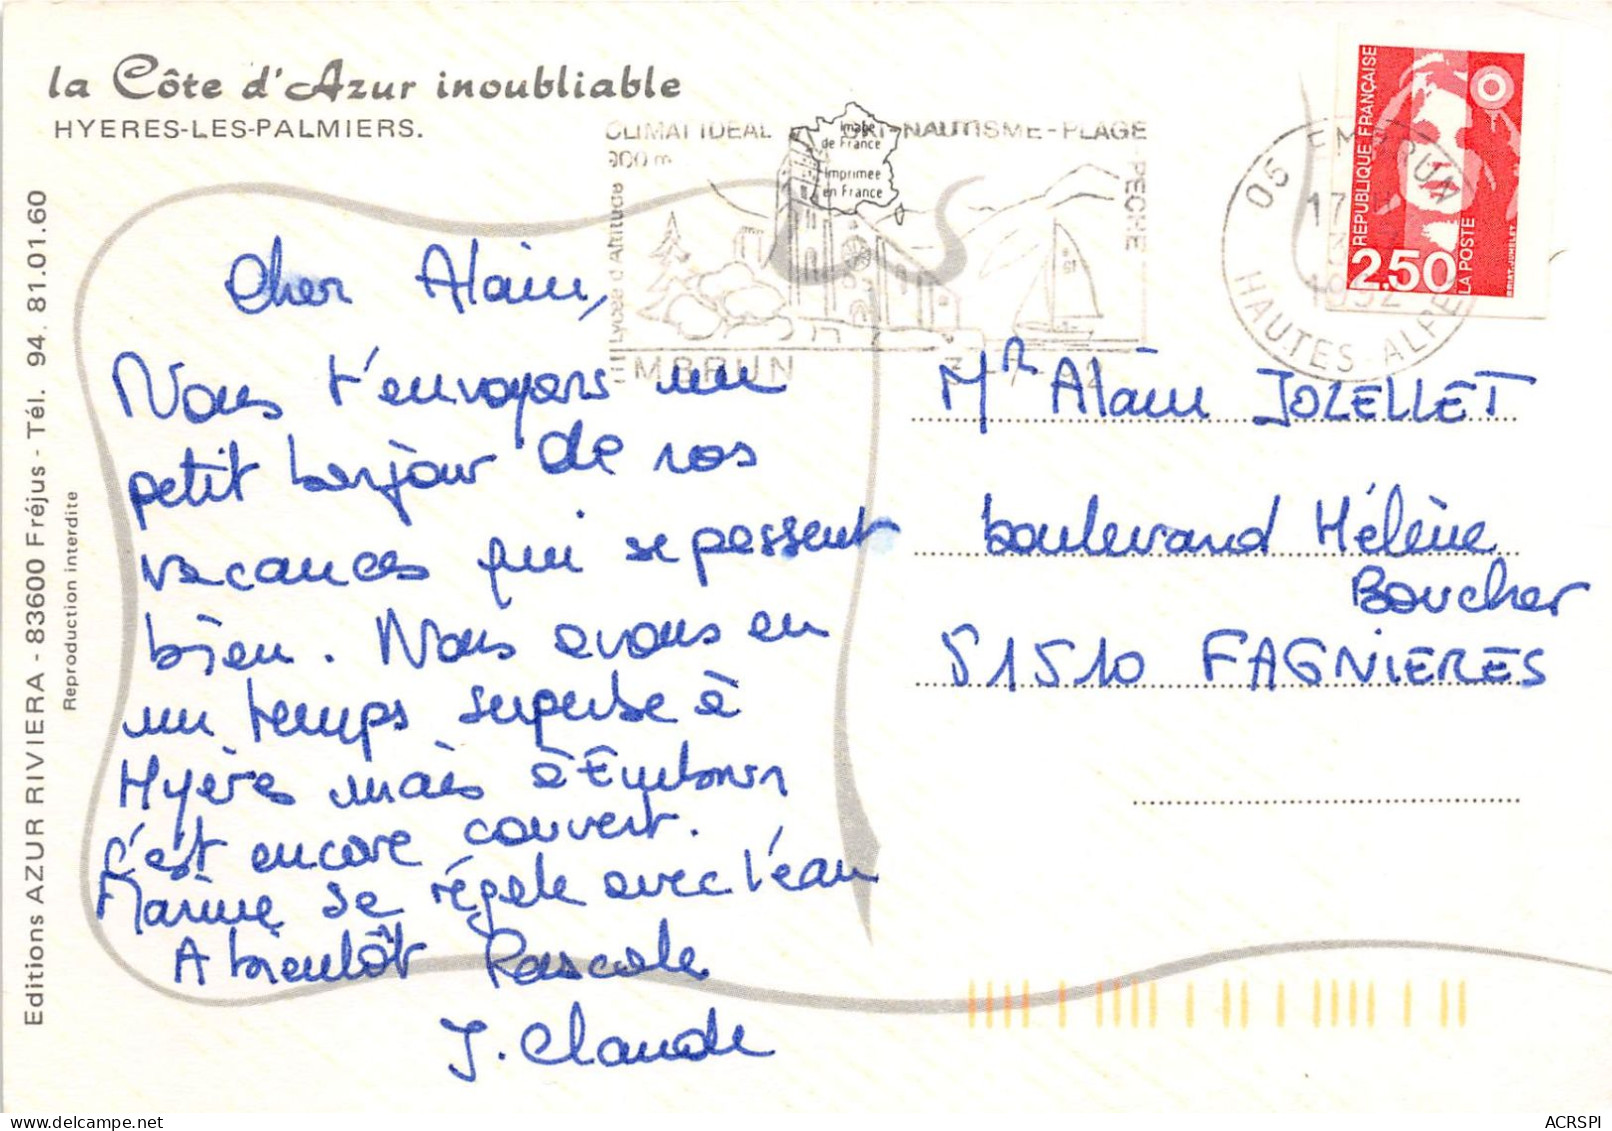 la Côte d'Azur inoubliable
HYERES-LES-PALMIERS.
Editions AZUR RIVIERA - 83600 Fréjus - Tél. 94. 81.01.60
Reproduction interdite
CLIMAT IDEAL SKI-NAUTISME-PLAGE
PECHE
900 m
Lycée d'Altitude
EMBRUN
3-7-92
Image
de France
Imprimée
en France
05 EMBRUN
17 H
3
1992
HAUTES ALPES
REPUBLIQUE FRANÇAISE
2.50
LA POSTE
Cher Alain,
Nous t'envoyons un
petit bonjour de nos
vacances qui se passent
bien. Nous avons eu
un temps superbe à
Hyères mais à Embrun
c'est encore couvert.
Marine se régale avec l'eau
A bientôt Pascale
J. Claude
Mr Alain JOZELLET
boulevard Hélène
Boucher
51510 FAGNIERES
ACRSPI